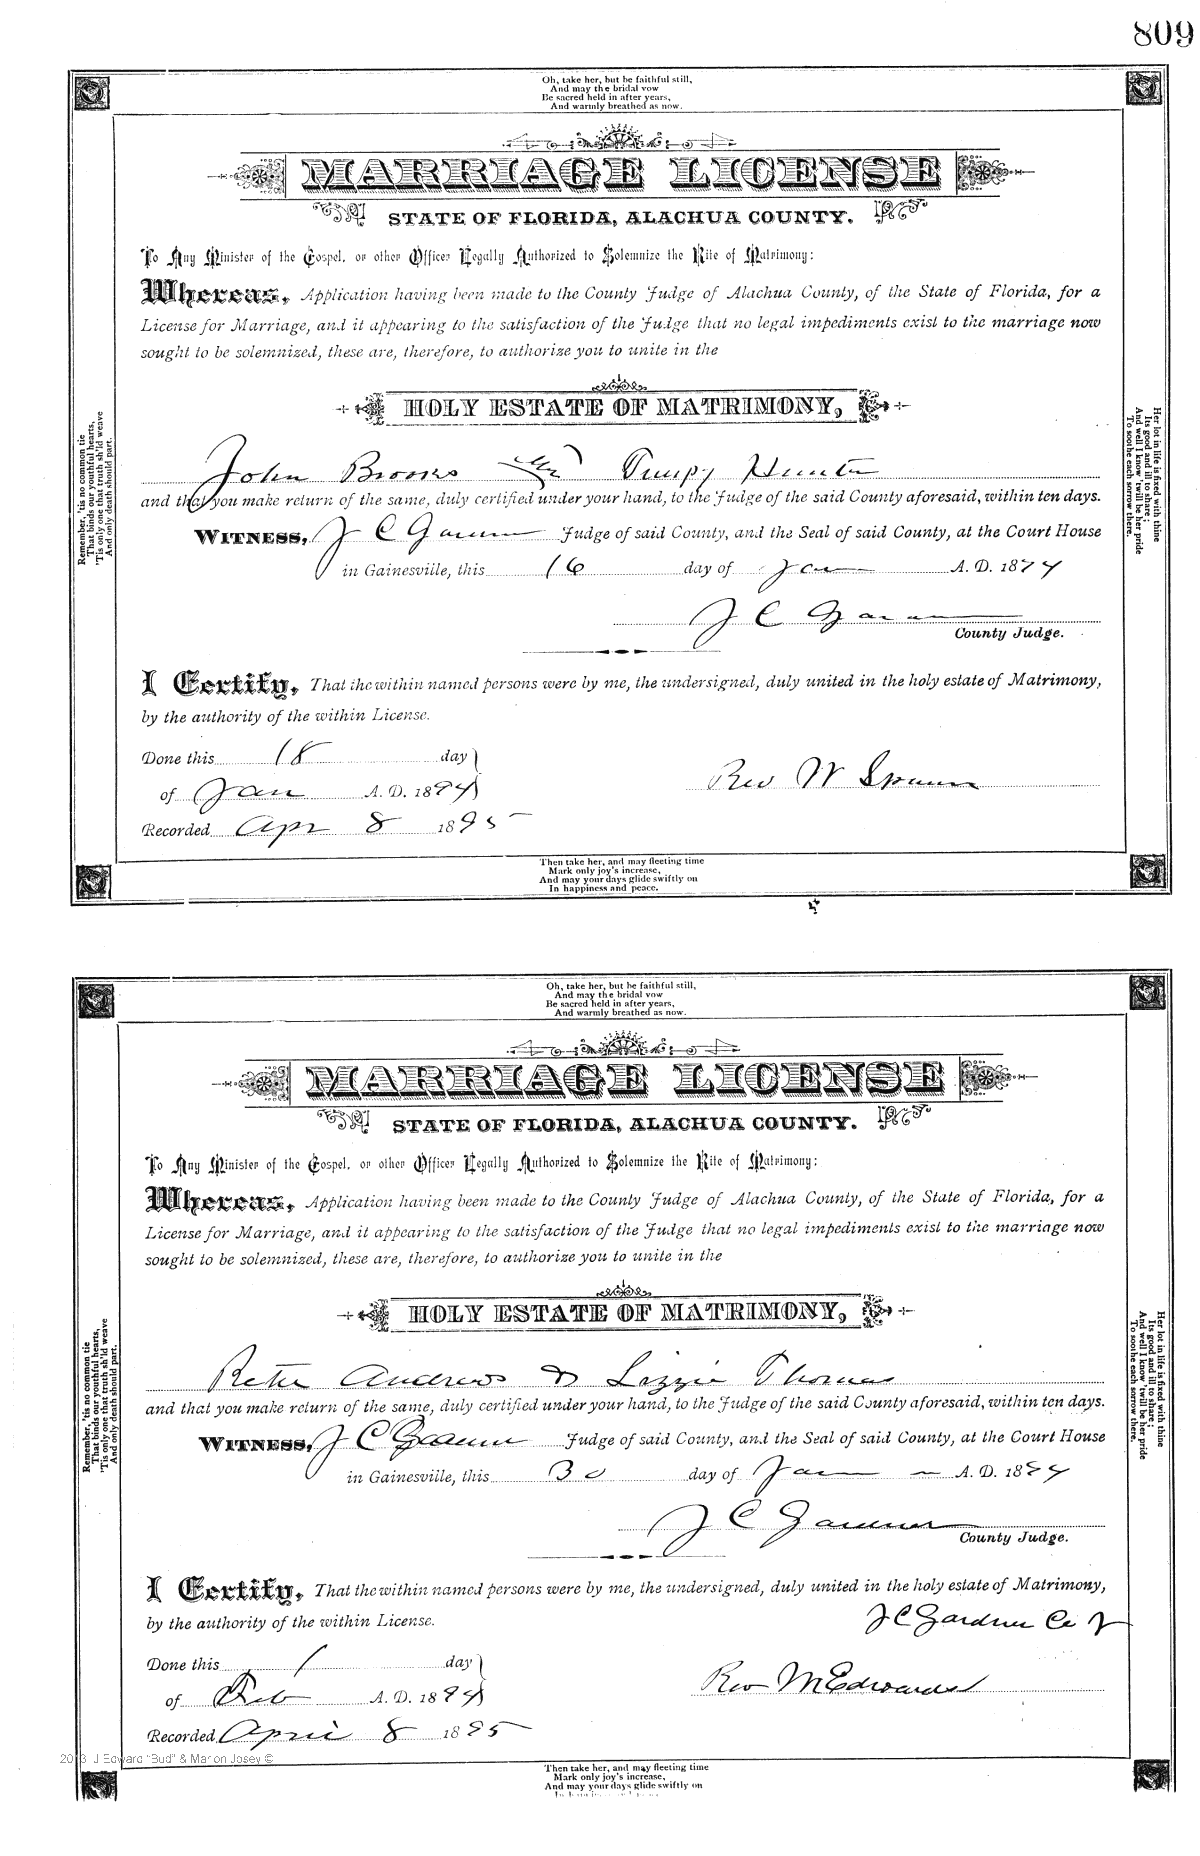 809
Oh, take her, but be faithful still,
And may the bridal vow
Be sacred held in after years,
And warmly breathed as now.
MARRIAGE LICENSE
STATE OF FLORIDA, ALACHUA COUNTY.
To Any Minister of the Gospel, or other Officer Legally Authorized to Solemnize the Rite of Matrimony:
Whereas, Application having been made to the County Judge of Alachua County, of the State of Florida, for a
License for Marriage, and it appearing to the satisfaction of the Judge that no legal impediments exist to the marriage now
sought to be solemnized, these are, therefore, to authorize you to unite in the
HOLY ESTATE OF MATRIMONY,
John Brooks & Hunter
and that you make return of the same, duly certified under your hand, to the Judge of the said County aforesaid, within ten days.
WITNESS, J C Gardner Judge of said County, and the Seal of said County, at the Court House
in Gainesville, this 16 day of Jan A. D. 1894
J C Gardner
County Judge.
I Certify, That the within named persons were by me, the undersigned, duly united in the holy estate of Matrimony,
by the authority of the within License.
Done this 18 day
of Jan A. D. 1894
Rev W
Recorded Apr 8 1895
Remember, 'tis no common tie
That binds our youthful hearts,
'Tis only one that truth sh'ld weave
And only death should part.
Her lot in life is fixed with thine
Its good and ill to share;
And well I know 'twill be her pride
To soothe each sorrow there.
Then take her, and may fleeting time
Mark only joy's increase,
And may your days glide swiftly on
In happiness and peace.
Oh, take her, but be faithful still,
And may the bridal vow
Be sacred held in after years,
And warmly breathed as now.
MARRIAGE LICENSE
STATE OF FLORIDA, ALACHUA COUNTY.
To Any Minister of the Gospel, or other Officer Legally Authorized to Solemnize the Rite of Matrimony:
Whereas, Application having been made to the County Judge of Alachua County, of the State of Florida, for a
License for Marriage, and it appearing to the satisfaction of the Judge that no legal impediments exist to the marriage now
sought to be solemnized, these are, therefore, to authorize you to unite in the
HOLY ESTATE OF MATRIMONY,
Peter Andrews & Lizzie Thomas
and that you make return of the same, duly certified under your hand, to the Judge of the said County aforesaid, within ten days.
WITNESS, J C Gardner Judge of said County, and the Seal of said County, at the Court House
in Gainesville, this 30 day of Jan A. D. 1894
J C Gardner
County Judge.
I Certify, That the within named persons were by me, the undersigned, duly united in the holy estate of Matrimony,
by the authority of the within License.
J C Gardner Co J
Done this 1 day
of Feb A. D. 1894
Rev M Edwards
Recorded April 8 1895
Remember, 'tis no common tie
That binds our youthful hearts,
'Tis only one that truth sh'ld weave
And only death should part.
Her lot in life is fixed with thine
Its good and ill to share;
And well I know 'twill be her pride
To soothe each sorrow there.
2013 J Edward "Bud" & Marion Josey ©
Then take her, and may fleeting time
Mark only joy's increase,
And may your days glide swiftly on
In happiness and peace.